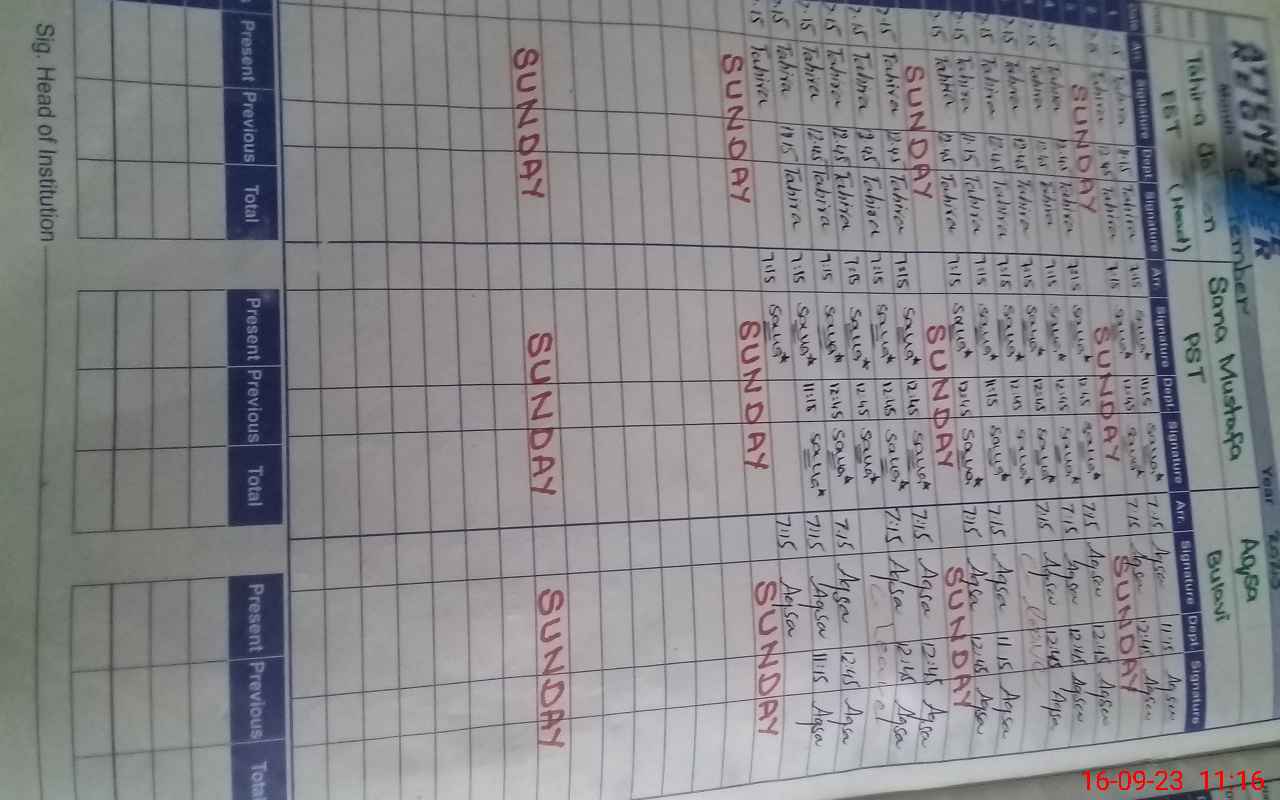 ATTENDANCE
REGISTER
Month September Year 2023
Sana Mustafa Aqsa
Tahira
EBT (Head) PST Bulavi
Date Arr. Signature Dept. Signature Arr. Signature Dept. Signature Arr. Signature Dept. Signature
1 7:15 Tahira 11:15 Tahira 7:15 Sana* 11:15 Sana* 7:15 Aqsa 11:15 Aqsa
2 7:15 Tahira 12:45 Tahira 7:15 Sana* 12:45 Sana* 7:15 Aqsa 12:45 Aqsa
SUNDAY SUNDAY SUNDAY
7:15 Tahira 12:45 Tahira 7:15 Sana* 12:45 Sana* 7:15 Aqsa 12:45 Aqsa
7:15 Tahira 12:45 Tahira 7:15 Sana* 12:45 Sana* 7:15 Aqsa 12:45 Aqsa
7:15 Tahira 12:45 Tahira 7:15 Sana* 12:45 Sana* 7:15 Aqsa 12:45 Aqsa
7:15 Tahira 12:45 Tahira 7:15 Sana* 12:45 Sana* C/Leave
7:15 Tahira 11:15 Tahira 7:15 Sana* 11:15 Sana* 7:15 Aqsa 11:15 Aqsa
7:15 Tahira 12:45 Tahira 7:15 Sana* 12:45 Sana* 7:15 Aqsa 12:45 Aqsa
SUNDAY SUNDAY SUNDAY
7:15 Tahira 12:45 Tahira 7:15 Sana* 12:45 Sana* 7:15 Aqsa 12:45 Aqsa
7:15 Tahira 12:45 Tahira 7:15 Sana* 12:45 Sana* 7:15 Aqsa 12:45 Aqsa
7:15 Tahira 12:45 Tahira 7:15 Sana* 12:45 Sana* C Leave
7:15 Tahira 12:45 Tahira 7:15 Sana* 12:45 Sana* 7:15 Aqsa 12:45 Aqsa
7:15 Tahira 11:15 Tahira 7:15 Sana* 11:15 Sana* 7:15 Aqsa 11:15 Aqsa
7:15 Tahira 7:15 Sana* 7:15 Aqsa
SUNDAY SUNDAY SUNDAY
SUNDAY SUNDAY SUNDAY
Present Previous Total Present Previous Total Present Previous Total
Sig. Head of Institution
16-09-23 11:16